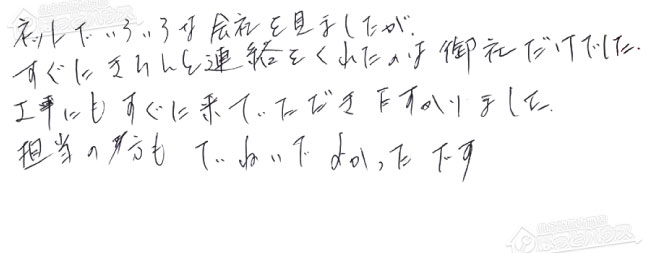 ネットでいろいろな会社を見ましたが、
すぐにきちんと連絡をくれたのは御社だけでした。
工事にもすぐに来ていただきたすかりました。
担当の方もていねいでよかったです